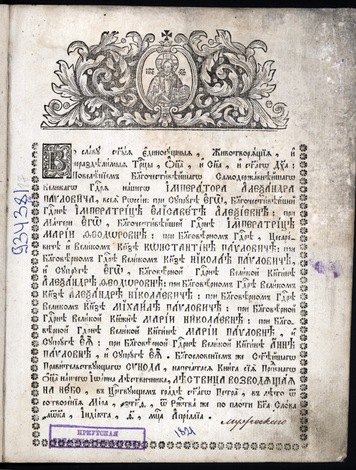 Въ славу ст҃ыѧ Єдиносущныѧ, Животворѧщїѧ, и
нераздѣлимыѧ Трⷪ҇цы, Ѻц҃а, и Сн҃а, и ст҃агѡ Дх҃а:
Повелѣнїемъ Благочестивѣйшагѡ Самодержавнѣйшагѡ
великагѡ Гдⷭ҇рѧ нашегѡ ІМПЕРАТОРА АЛЕѮАНДРА
ПАVЛОВИЧА, всеѧ Рѡссїи: при Сꙋпрꙋгѣ ЄГѠ, Благочестивѣйшей
Гдⷭ҇рнѣ ІМПЕРАТРИЦѢ ЄЛІСАВЕТѢ АЛЕѮІЕВНѢ: при
Матери ЄГѠ, Благочестивѣйшей Гдⷭ҇рнѣ ІМПЕРАТРИЦѢ
МАРІИ ѲЕОДОРОВНѢ: при Благовѣрномъ Гдⷭ҇рѣ, Цесаре-
вичѣ и Великомъ Кнѧзѣ КѠНСТАНТІНѢ ПАVЛОВИЧѢ: при
Благовѣрномъ Гдⷭ҇рѣ Великомъ Кнѧзѣ НІКОЛАѢ ПАVЛОВИЧѢ,
и Сꙋпрꙋгѣ ЄГѠ, Благовѣрной Гдⷭ҇рнѣ Великой Кнѧгинѣ
АЛЕѮАНДРѢ ѲЕОДОРОВНѢ: при Благовѣрномъ Гдⷭ҇рѣ Великомъ
Кнѧзѣ АЛЕѮАНДРѢ НІКОЛАЕВИЧѢ: при Благовѣрномъ Гдⷭ҇рѣ
Великомъ Кнѧзѣ МІХАИЛѢ ПАVЛОВИЧѢ: при Благовѣрной
Гдⷭ҇рнѣ Великой Кнѧжнѣ МАРІИ НІКОЛАЕВНѢ: при Благо-
вѣрной Гдⷭ҇рнѣ Великой Кнѧгинѣ МАРІИ ПАVЛОВНѢ, и
Сꙋпрꙋгѣ ЄѦ: при Благовѣрной Гдⷭ҇рнѣ Великой Кнѧгинѣ АННѢ
ПАVЛОВНѢ, и Сꙋпрꙋгѣ ЄѦ, Благословенїемъ же Ст҃ѣйшагѡ
Правительствꙋющагѡ СѴНОДА, напечатасѧ Книга сїѧ Преподобнагѡ
Ѻц҃а нашегѡ Іѡанна Лѣствичника, ЛѢСТВИЦА ВОЗВОДѦЩАѦ
НА НЕБО, въ Царствꙋющемъ градѣ ст҃агѡ Петра, въ лѣто ѿ
сотворенїѧ Мїра
ѿ Ржⷭ҇тва же по плоти Бг҃а Слова
Індікта, мц҃а Апрїллїа
934381
ИРКУТСКАЯ